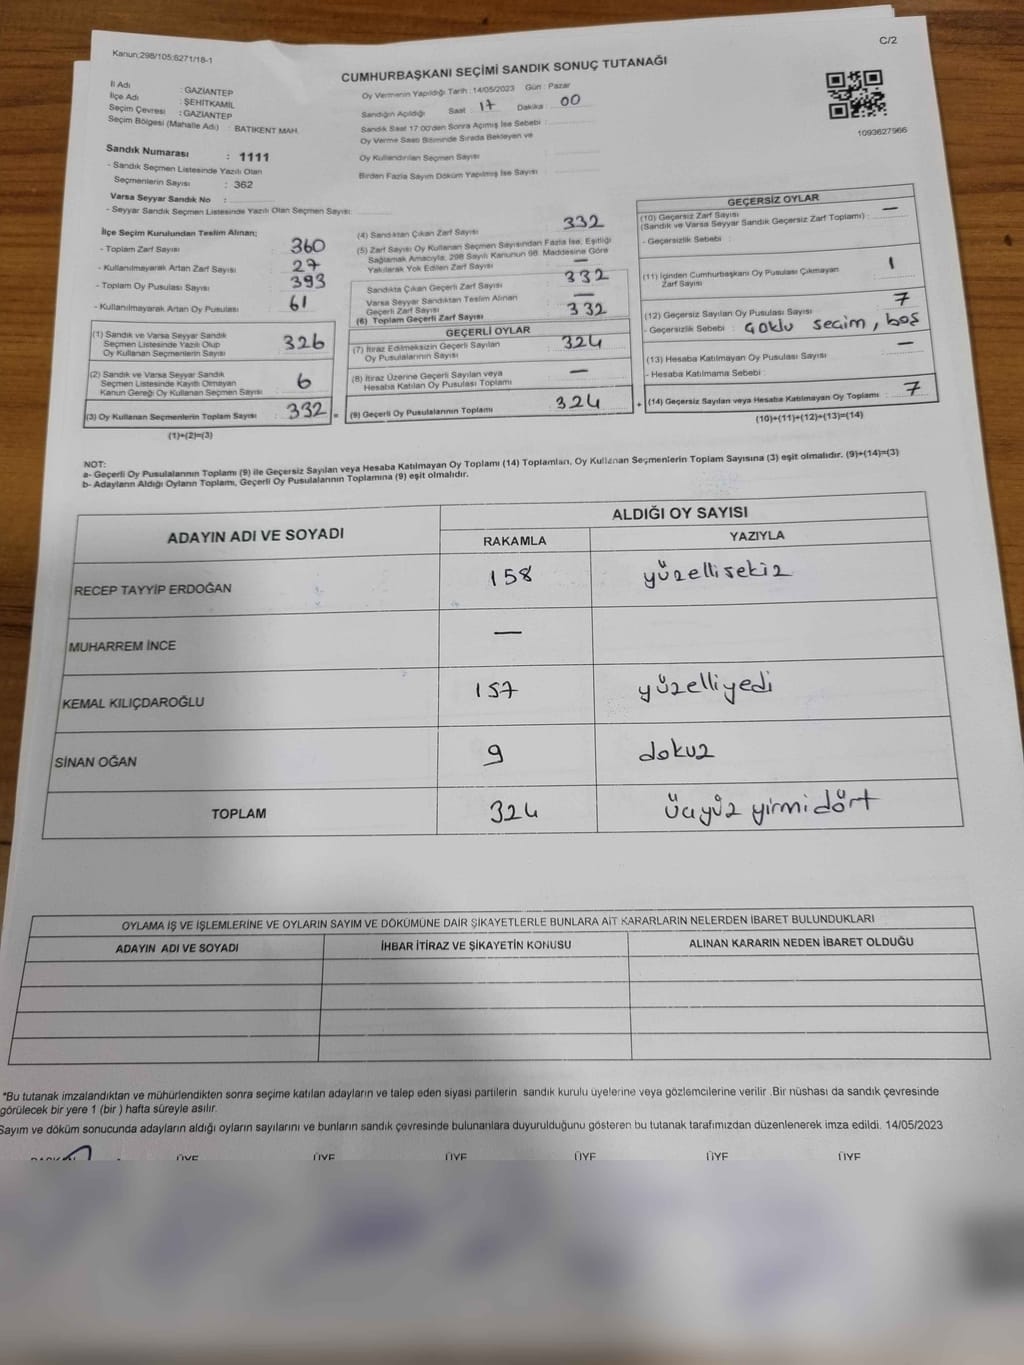 Kanun;298/105;6271/18-1
C/2
CUMHURBAŞKANI SEÇİMİ SANDIK SONUÇ TUTANAĞI
İl Adı : GAZİANTEP
İlçe Adı : ŞEHİTKAMİL
Seçim Çevresi : GAZİANTEP
Seçim Bölgesi (Mahalle Adı) : BATIKENT MAH.
Oy Vermenin Yapıldığı Tarih :14/05/2023 Gün : Pazar
Sandığın Açıldığı Saat : 17 Dakika : 00
Sandık Saat 17:00'den Sonra Açılmış İse Sebebi :
Oy Verme Saati Bitiminde Sırada Bekleyen ve
Oy Kullandırılan Seçmen Sayısı :
Birden Fazla Sayım Döküm Yapılmış İse Sayısı :
1093627966
Sandık Numarası : 1111
- Sandık Seçmen Listesinde Yazılı Olan
Seçmenlerin Sayısı : 362
Varsa Seyyar Sandık No :
- Seyyar Sandık Seçmen Listesinde Yazılı Olan Seçmen Sayısı:
İlçe Seçim Kurulundan Teslim Alınan;
- Toplam Zarf Sayısı : 360
- Kullanılmayarak Artan Zarf Sayısı : 27
- Toplam Oy Pusulası Sayısı : 393
- Kullanılmayarak Artan Oy Pusulası : 61
(1) Sandık ve Varsa Seyyar Sandık
Seçmen Listesinde Yazılı Olup
Oy Kullanan Seçmenlerin Sayısı : 326
(2) Sandık ve Varsa Seyyar Sandık
Seçmen Listesinde Kayıtlı Olmayan
Kanun Gereği Oy Kullanan Seçmen Sayısı : 6
(3) Oy Kullanan Seçmenlerin Toplam Sayısı : 332 =
(1)+(2)=(3)
(4) Sandıktan Çıkan Zarf Sayısı : 332
(5) Zarf Sayısı Oy Kullanan Seçmen Sayısından Fazla İse, Eşitliği
Sağlamak Amacıyla, 298 Sayılı Kanunun 98. Maddesine Göre
Yakılarak Yok Edilen Zarf Sayısı : —
Sandıkta Çıkan Geçerli Zarf Sayısı : 332
Varsa Seyyar Sandıktan Teslim Alınan
Geçerli Zarf Sayısı : —
(6) Toplam Geçerli Zarf Sayısı : 332
GEÇERLİ OYLAR
(7) İtiraz Edilmeksizin Geçerli Sayılan
Oy Pusulalarının Sayısı : 324
(8) İtiraz Üzerine Geçerli Sayılan veya
Hesaba Katılan Oy Pusulası Toplamı : —
(9) Geçerli Oy Pusulalarının Toplamı : 324 +
GEÇERSİZ OYLAR
(10) Geçersiz Zarf Sayısı
(Sandık ve Varsa Seyyar Sandık Geçersiz Zarf Toplamı) : —
- Geçersizlik Sebebi :
(11) İçinden Cumhurbaşkanı Oy Pusulası Çıkmayan
Zarf Sayısı : 1
(12) Geçersiz Sayılan Oy Pusulası Sayısı : 7
- Geçersizlik Sebebi : Çoklu seçim, boş
(13) Hesaba Katılmayan Oy Pusulası Sayısı : —
- Hesaba Katılmama Sebebi :
(14) Geçersiz Sayılan veya Hesaba Katılmayan Oy Toplamı : 7
(10)+(11)+(12)+(13)=(14)
NOT:
a- Geçerli Oy Pusulalarının Toplamı (9) ile Geçersiz Sayılan veya Hesaba Katılmayan Oy Toplamı (14) Toplamları, Oy Kullanan Seçmenlerin Toplam Sayısına (3) eşit olmalıdır. (9)+(14)=(3)
b- Adayların Aldığı Oyların Toplamı, Geçerli Oy Pusulalarının Toplamına (9) eşit olmalıdır.
ADAYIN ADI VE SOYADI
ALDIĞI OY SAYISI
RAKAMLA YAZIYLA
RECEP TAYYİP ERDOĞAN 158 yüzellisekiz
MUHARREM İNCE —
KEMAL KILIÇDAROĞLU 157 yüzelliyedi
SİNAN OĞAN 9 dokuz
TOPLAM 324 üçyüz yirmidört
OYLAMA İŞ VE İŞLEMLERİNE VE OYLARIN SAYIM VE DÖKÜMÜNE DAİR ŞİKAYETLERLE BUNLARA AİT KARARLARIN NELERDEN İBARET BULUNDUKLARI
ADAYIN ADI VE SOYADI İHBAR İTİRAZ VE ŞİKAYETİN KONUSU ALINAN KARARIN NEDEN İBARET OLDUĞU
*Bu tutanak imzalandıktan ve mühürlendikten sonra seçime katılan adayların ve talep eden siyasi partilerin sandık kurulu üyelerine veya gözlemcilerine verilir .Bir nüshası da sandık çevresinde
görülecek bir yere 1 (bir ) hafta süreyle asılır.
Sayım ve döküm sonucunda adayların aldığı oyların sayılarını ve bunların sandık çevresinde bulunanlara duyurulduğunu gösteren bu tutanak tarafımızdan düzenlenerek imza edildi. 14/05/2023
ÜYE ÜYE ÜYE ÜYE ÜYE ÜYE